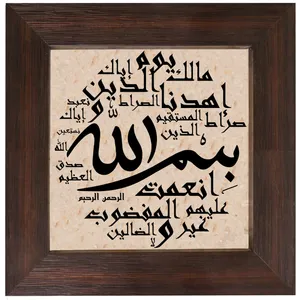 مالك يوم إياك
الدين
اهدنا و نعبد
صراط الصراط
المستقيم و إياك
الذين نستعين
بسم الله
الله
صدق
العظيم
أنعمت
الرحمن الرحيم
عليهم المغضوب
غير و
لا الضالين